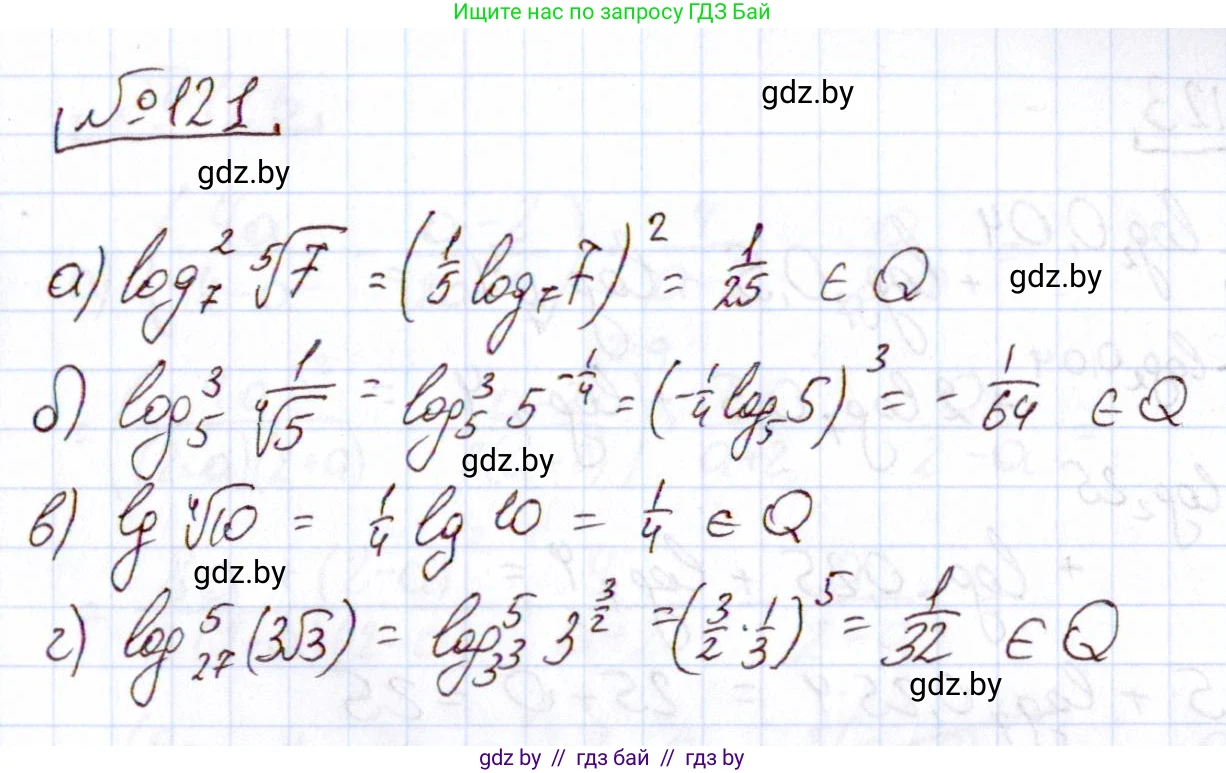 Ищите нас по запросу ГДЗ Бай
№121
gdz.by
gdz.by
а) log₇² ⁵√7 = (1/5 log₇ 7)² = 1/25 ∈ Q
gdz.by
б) log₅³ 1/⁴√5 = log₅³ 5^(-1/4) = (-1/4 log₅ 5)³ = - 1/64 ∈ Q
gdz.by
в) lg ⁴√10 = 1/4 lg 10 = 1/4 ∈ Q
gdz.by
г) log₂₇⁵ (3√3) = log₃³⁵ 3^(3/2) = (3/2 · 1/3)⁵ = 1/32 ∈ Q
gdz.by
gdz.by // гдз бай // гдз by